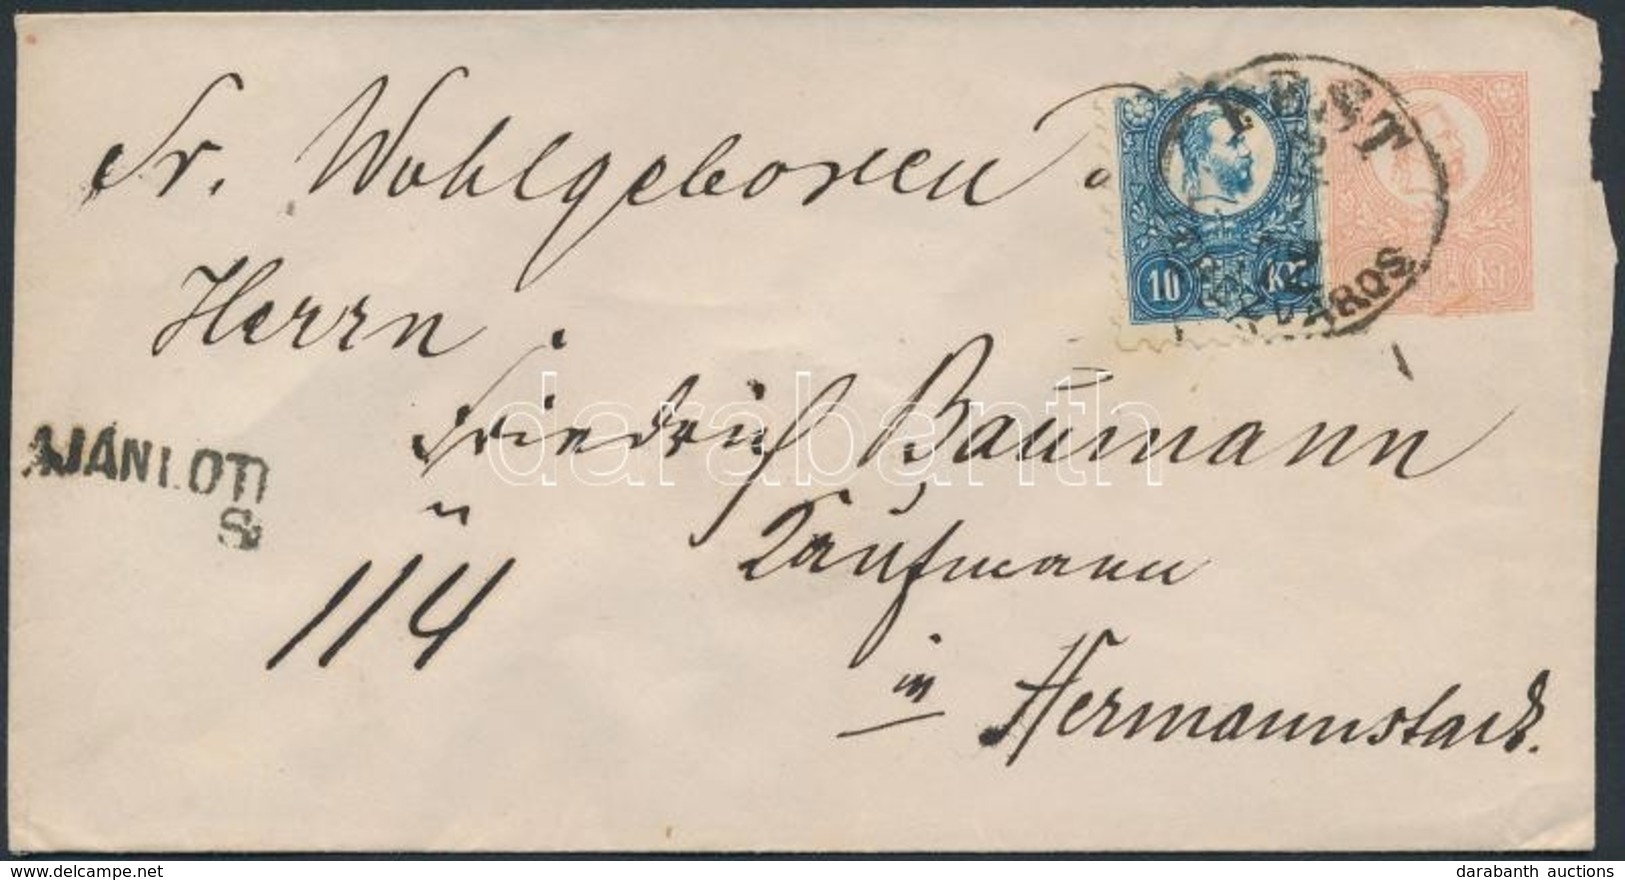 Sr. Wohlgeboren
Herrn
Friedrich Baumann
Kaufmann
in Hermannstadt.
AJÁNLOTT
114
PEST
10 Kr
Kr
darabanth
darabanth auctions